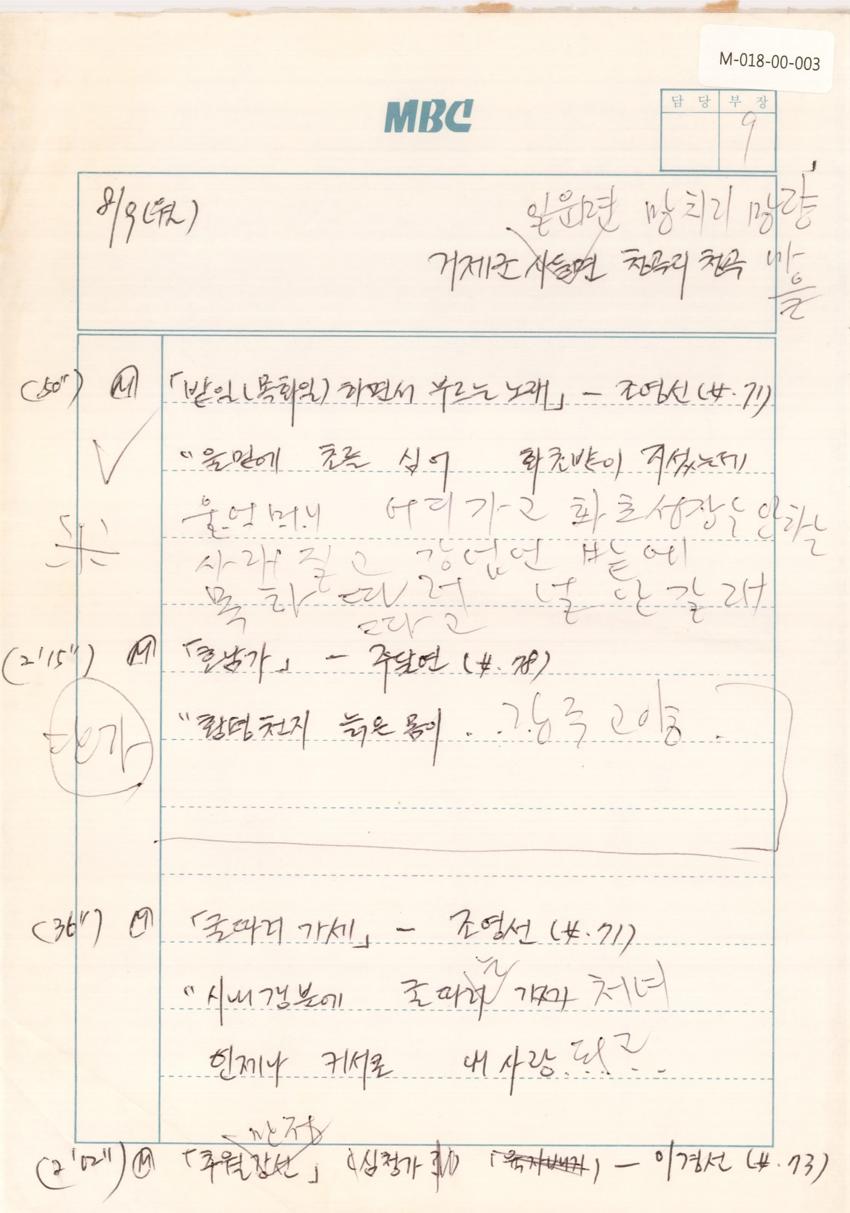 M-018-00-003
MBC
담 당 부 장
9
8/9 (월)
일운면 망치리 망량
거제군 사등면 청곡리 청곡 마을
(50") M 「밭일(목화일) 하면서 부르는 노래」 - 조영선 (남.71)
"울밑에 초를 심어 화초밭이 지섰는데
울어머니 어디가고 화초성장는 안하는
사래 질고 강업언 밭에
목화 따러 널 난갈래
따고
(2'15") M 「호남가」 - 주달연 (남.78)
단가
"함평천지 늙은 몸이 . . .
(36") M 「굴따러 가세」 - 조영선 (남.71)
는
"시내갱분에 굴따러 가자 처녀
언제나 커서로 내 사랑 되고 . .
(2'02") M 「추월강산」 (심청가 ) 「육자배기」 - 이경선 (남.73)